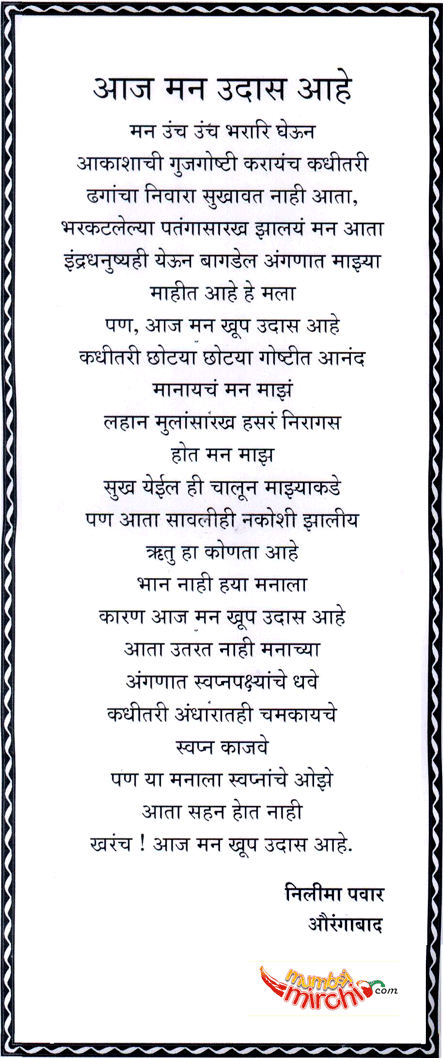 आज मन उदास आहे
मन उंच उंच भरारि घेऊन
आकाशाची गुजगोष्टी करायंच कधीतरी
ढगांचा निवारा सुखावत नाही आता,
भरकटलेल्या पतंगासारख झालयं मन आता
इंद्रधनुष्यही येऊन बागडेल अंगणात माझ्या
माहीत आहे हे मला
पण, आज मन खूप उदास आहे
कधीतरी छोटया छोटया गोष्टीत आनंद
मानायचं मन माझं
लहान मुलांसारख हसरं निरागस
होत मन माझ
सुख येईल ही चालून माझ्याकडे
पण आता सावलीही नकोशी झालीय
ऋतु हा कोणता आहे
भान नाही हया मनाला
कारण आज मन खूप उदास आहे
आता उतरत नाही मनाच्या
अंगणात स्वप्नपक्ष्यांचे थवे
कधीतरी अंधारातही चमकायचे
स्वप्न काजवे
पण या मनाला स्वप्नांचे ओझे
आता सहन होत नाही
खरंच ! आज मन खूप उदास आहे.
निलीमा पवार
औरंगाबाद
mumbai
mirchi.com